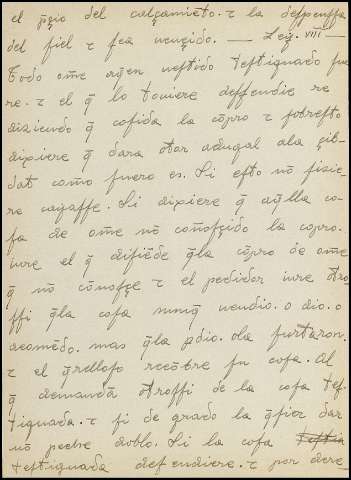 el p̃çio del calçamiẽto. τ la despenssa
del fiel τ sea uençido. — Ley. VIII —
Todo om̃e a q̃en uestido testiguado fue
re. τ el q̃ lo touiere deffendiere
diziendo q̃ cosida la cõpro τ sobresto
dixiere q̃ dara otor adugal ala çib-
dat como fuero es. Si esto nõ fizie-
re cayasse. Si dixiere q̃ aq̃lla co-
sa de om̃e nõ coñosçido la cõpro.
iure el q̃ difiẽde q̃la cõpro de om̃e
q̃ nõ coñosçe τ el pedidor iure otro
ssi q̃la cosa nunq̃ uendio. o dio. o
acomẽdo. mas q̃la p̃dio. ola furtaron.
τ el q̃relloso recõbre su cosa. Al
q̃ demandã otrossi de la cosa tes-
tiguada. τ si de grado la q̃sier dar
nõ peche doblo. Si la cosa
testiguada defendiere. τ por dere-